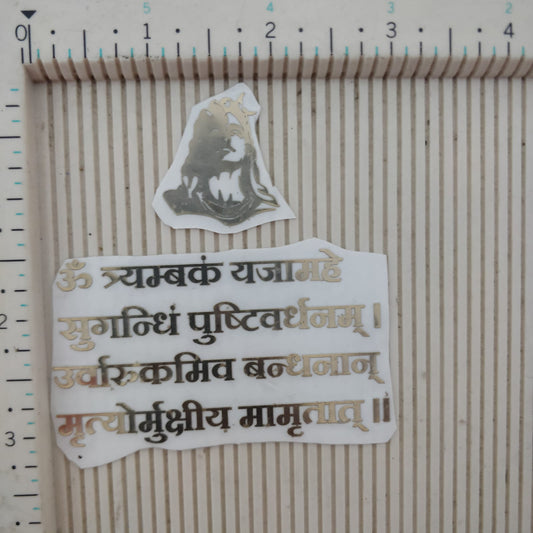 0 1 2 3 4
5 10
2
3
ॐ त्र्यम्बकं यजामहे
सुगन्धिं पुष्टिवर्धनम् ।
उर्वारुकमिव बन्धनान्
मृत्योर्मुक्षीय मामृतात् ॥